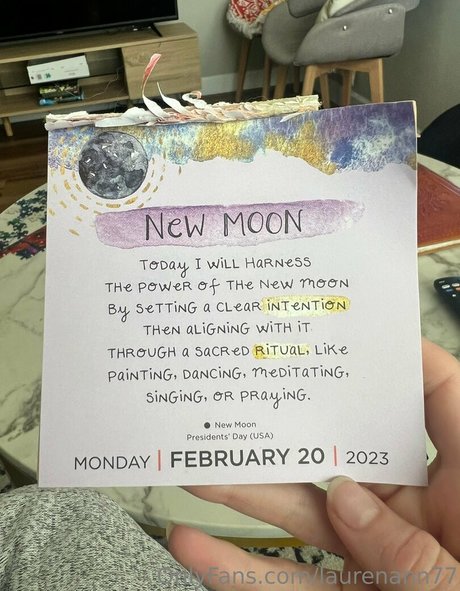 NEW MOON
TODAY I WILL HARNESS
THE POWER OF THE NEW MOON
BY SETTING A CLEAR INTENTION
THEN ALIGNING WITH IT
THROUGH A SACRED RITUAL, LIKE
PAINTING, DANCING, MEDITATING,
SINGING, OR PRAYING.
● New Moon
Presidents' Day (USA)
MONDAY | FEBRUARY 20 | 2023
OnlyFans.com/laurenann77